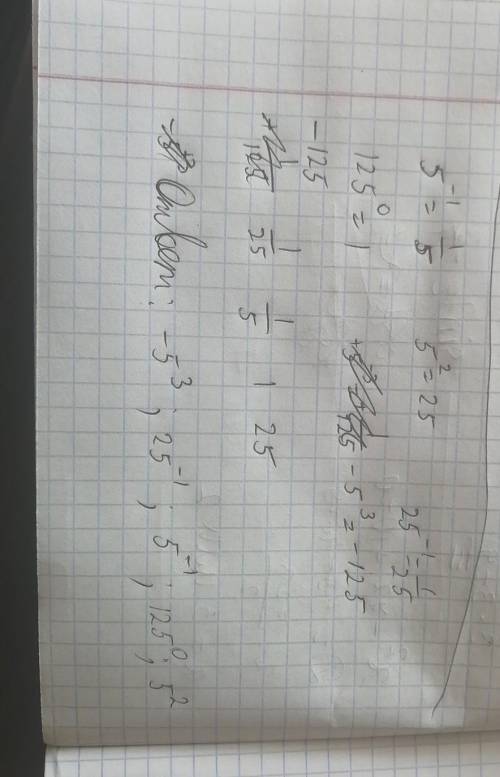 5⁻¹ = 1/5 5² = 25 25⁻¹ = 1/25
125⁰ = 1 -5³ = -125
-125
1/25 1/5 1 25
Ответ: -5³; 25⁻¹; 5⁻¹; 125⁰; 5²